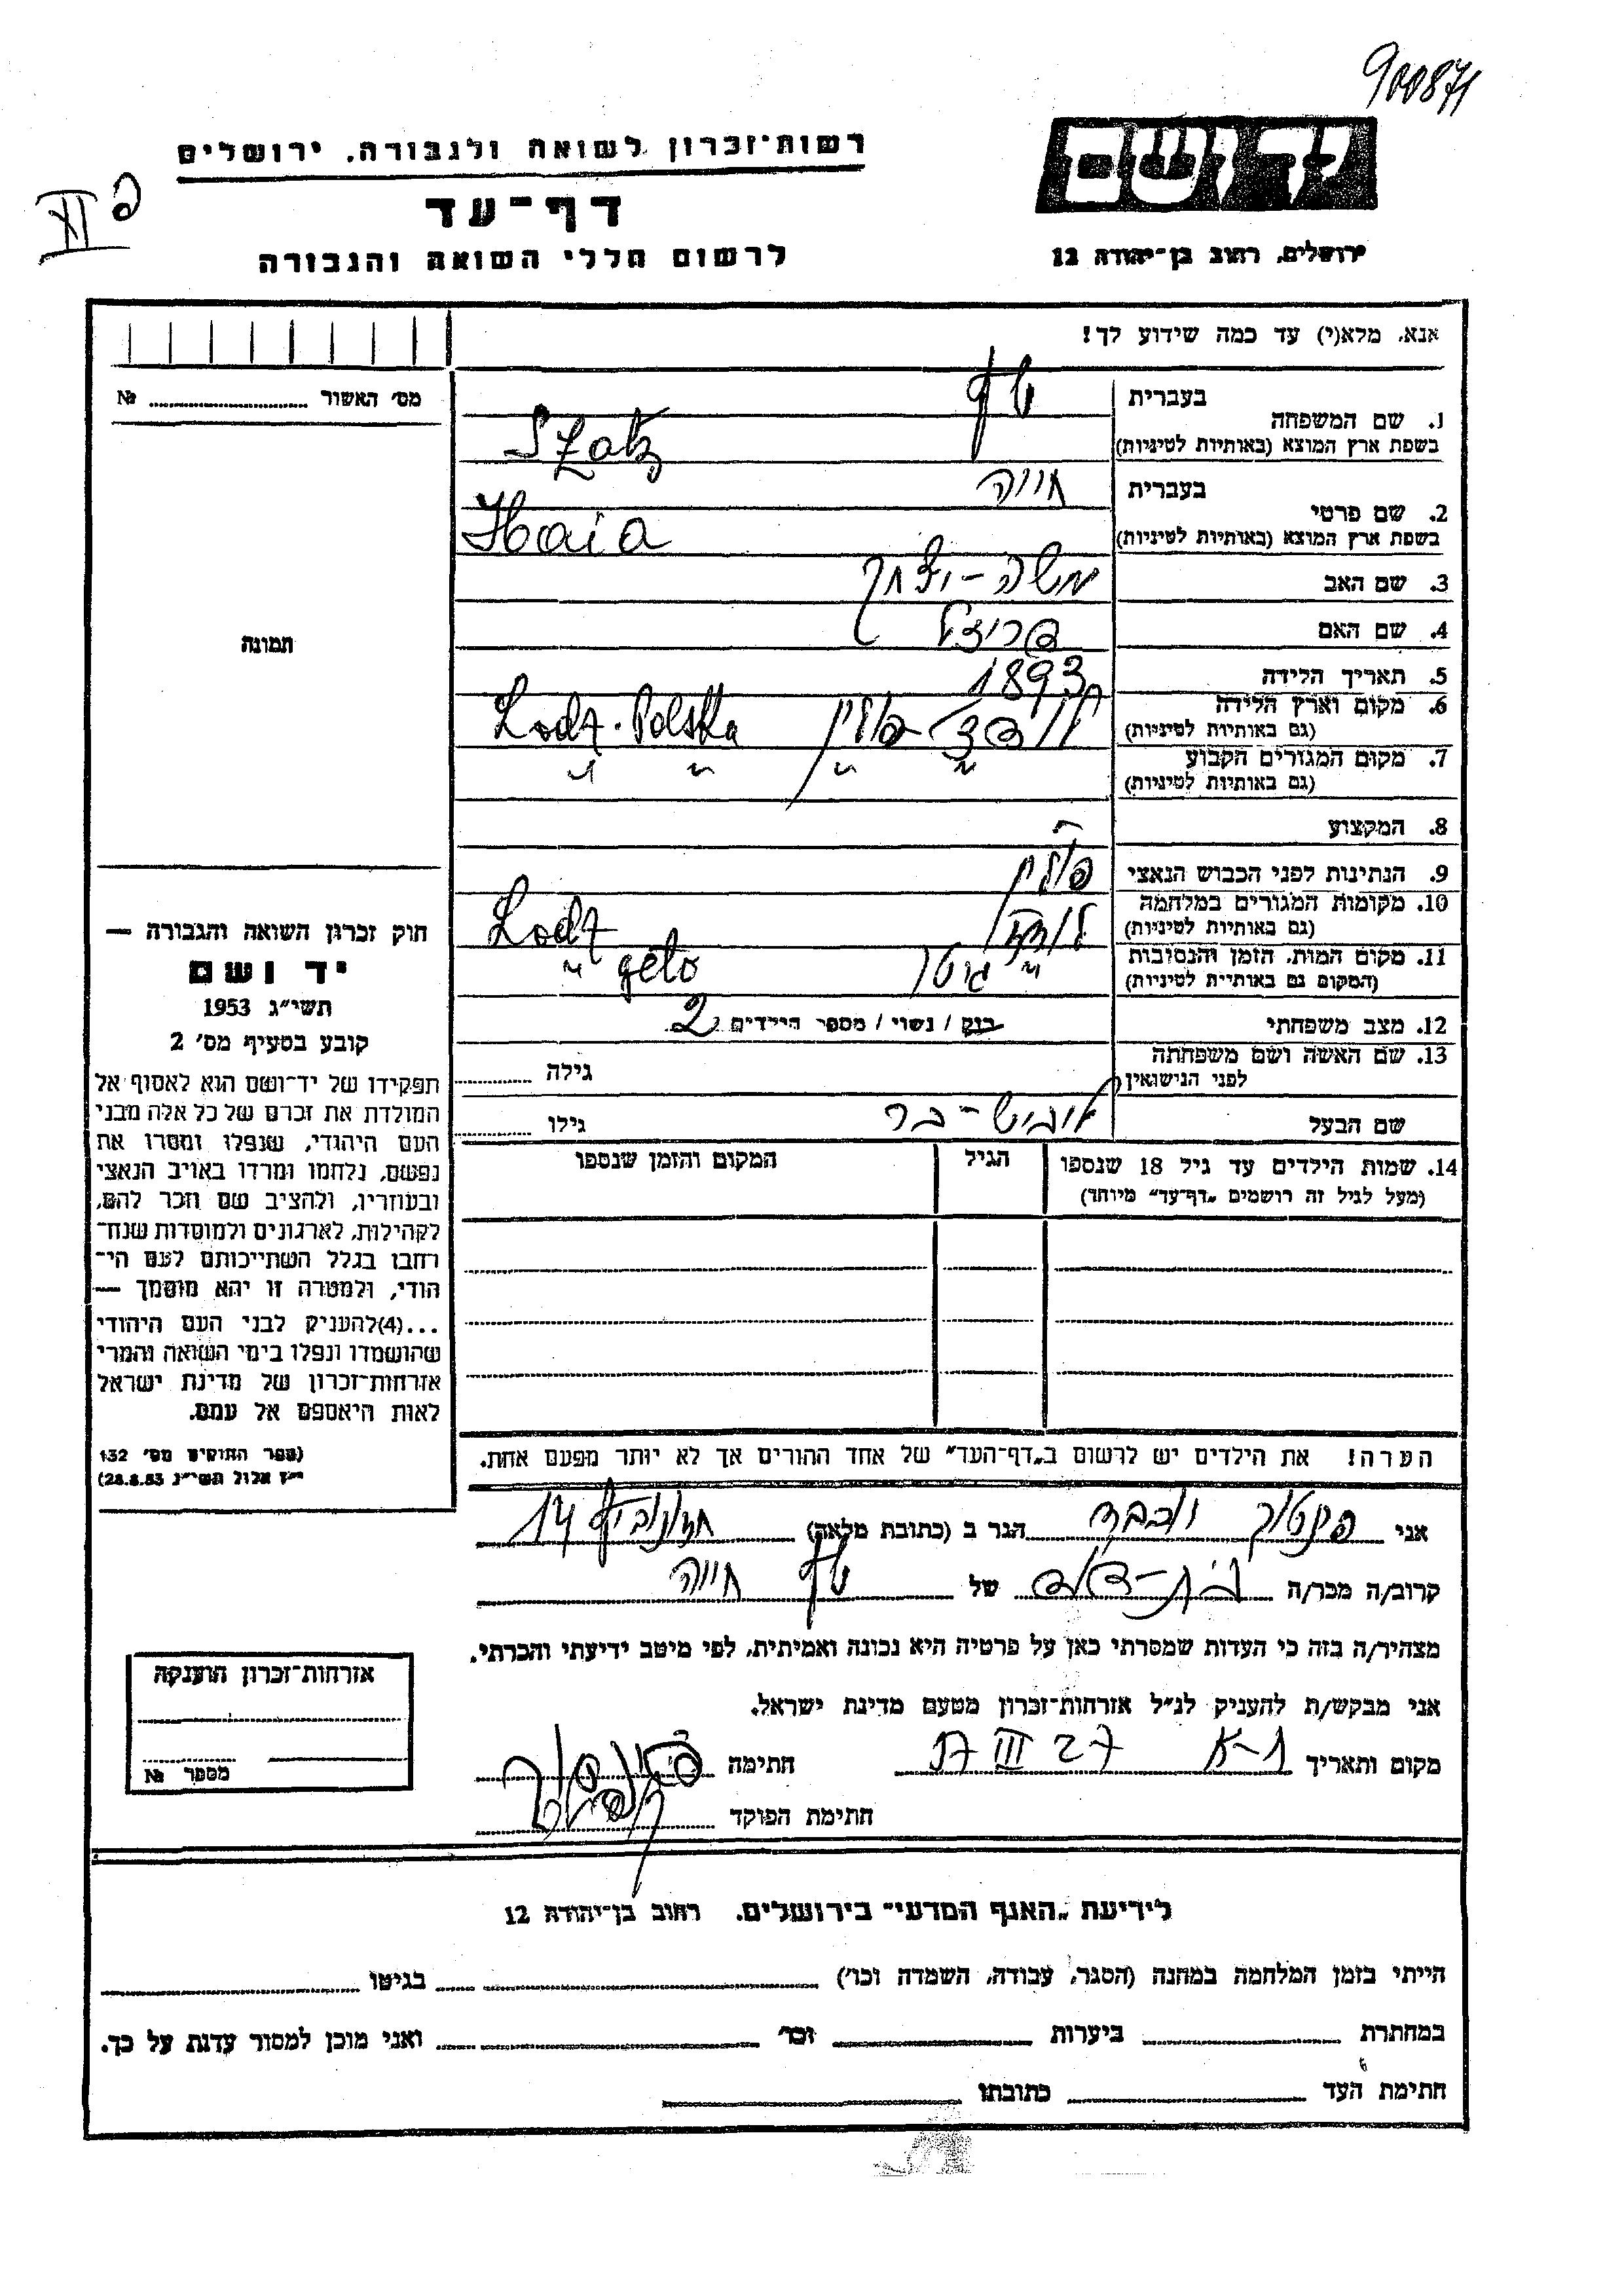 900871
רשות־זכרון לשואה ולגבורה, ירושלים
יד ושם
דף־עד
לרשום חללי השואה והגבורה
ירושלים, רחוב בן־יהודה 12
אנא, מלא(י) עד כמה שידוע לך!
מס' האשור № 
תמונה
1. שם המשפחה בעברית שץ
בשפת ארץ המוצא (באותיות לטיניות) Szatz
2. שם פרטי בעברית חייה
בשפת ארץ המוצא (באותיות לטיניות) Haia
3. שם האב משה-יצחק
4. שם האם
5. תאריך הלידה 1893
6. מקום וארץ הלידה (גם באותיות לטיניות) לודז-פולין Lodz. Polska
7. מקום המגורים הקבוע (גם באותיות לטיניות) " " " "
8. המקצוע
9. הנתינות לפני הכבוש הנאצי פולין
10. מקומות המגורים במלחמה (גם באותיות לטיניות) לודז Lodz
11. מקום המות, הזמן והנסיבות (המקום גם באותיות לטיניות) " גיטו " geto
12. מצב משפחתי רווק / נשוי / מספר הילדים 2
13. שם האשה ושם משפחתה לפני הנישואין גילה
שם הבעל גילו
14. שמות הילדים עד גיל 18 שנספו (מעל לגיל זה רושמים „דף־עד" מיוחד) הגיל המקום והזמן שנספו
הערה! את הילדים יש לרשום ב„דף־העד" של אחד ההורים אך לא יותר מפעם אחת.
חוק זכרון השואה והגבורה —
יד ושם
תשי"ג 1953
קובע בסעיף מס' 2
תפקידו של יד־ושם הוא לאסוף אל
המולדת את זכרם של כל אלה מבני
העם היהודי, שנפלו ומסרו את
נפשם, נלחמו ומרדו באויב הנאצי
ובעוזריו, ולהציב שם וזכר להם,
לקהילות, לארגונים ולמוסדות שנח־
רבו בגלל השתייכותם לעם הי־
הודי, ולמטרה זו יהא מוסמך —
...(4)להעניק לבני העם היהודי
שהושמדו ונפלו בימי השואה והמרי
אזרחות־זכרון של מדינת ישראל
לאות היאספם אל עמם.
(ספר החוקים מס' 132
י"ז אלול תשי"ג 28.8.53)
אני יוכבד הגר ב (כתובת מלאה) 14
קרוב/ה מכר/ה בת-דודה של שץ חייה
מצהיר/ה בזה כי העדות שמסרתי כאן על פרטיה היא נכונה ואמיתית, לפי מיטב ידיעתי והכרתי.
אני מבקש/ת להעניק לנ"ל אזרחות־זכרון מטעם מדינת ישראל.
מקום ותאריך 27 III 17 חתימה
חתימת הפוקד
אזרחות־זכרון הוענקה
מספר №
לידיעת „האגף המדעי" בירושלים, רחוב בן־יהודה 12
הייתי בזמן המלחמה במחנה (הסגר, עבודה, השמדה וכו') בגיטו
במחתרת ביערות וכו' ואני מוכן למסור עדות על כך.
חתימת העד כתובתו